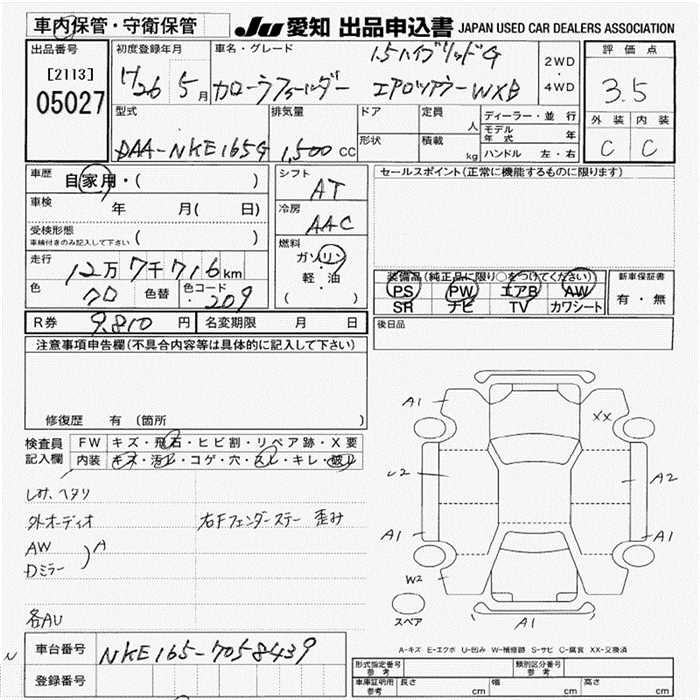 車内保管・守衛保管
JU 愛知 出品申込書 JAPAN USED CAR DEALERS ASSOCIATION
出品番号
[2113]
05027
初度登録年月
H26 5月
車名・グレード
1.5ハイブリッドG
カローラフィールダー エアロツアラーWXB
2WD
・
4WD
評価点
3.5
外装 内装
C C
型式
DAA-NKE165G
排気量
1,500 cc
ドア
形状
定員
人
積載
kg
ディーラー・並行
モデル年式 年
ハンドル 左・右
車歴 自家用・( )
車検 年 月( 日)
受検形態
車検付きのみ記入して下さい ( )
走行 12万7千716km
色 クロ 色替 色コード 209
シフト
AT
冷房
AAC
燃料
ガソリン
・
軽・油
( )
セールスポイント(正常に機能するものに限ります)
装備品(純正品に限り○をつけてください)
PS PW エアB AW
SR ナビ TV カワシート
新車保証書
有・無
R券 9,810 円 名変期限 月 日
後日品
注意事項申告欄(不具合内容等は具体的に記入して下さい)
修復歴 有 (箇所 )
検査員記入欄
FW キズ・飛石・ヒビ割・リペア跡・X要
内装 キズ・汚レ・コゲ・穴・スレ・キレ・破レ
しみ、ヘタリ
外オーディオ 右Fフェンダーステー 歪み
AW
Dミラー ) A
各AU
A1
XX
U2
A2
A1
A1
W2
A1
スペア
A-キズ E-エクボ U-凹み W-補修跡 S-サビ C-腐食 XX-交換済
車台番号 NKE165-7058439
登録番号
N
形式指定番号
参考
類別区分番号
参考
車庫証明用
参考
長さ cm 幅 cm 高さ cm